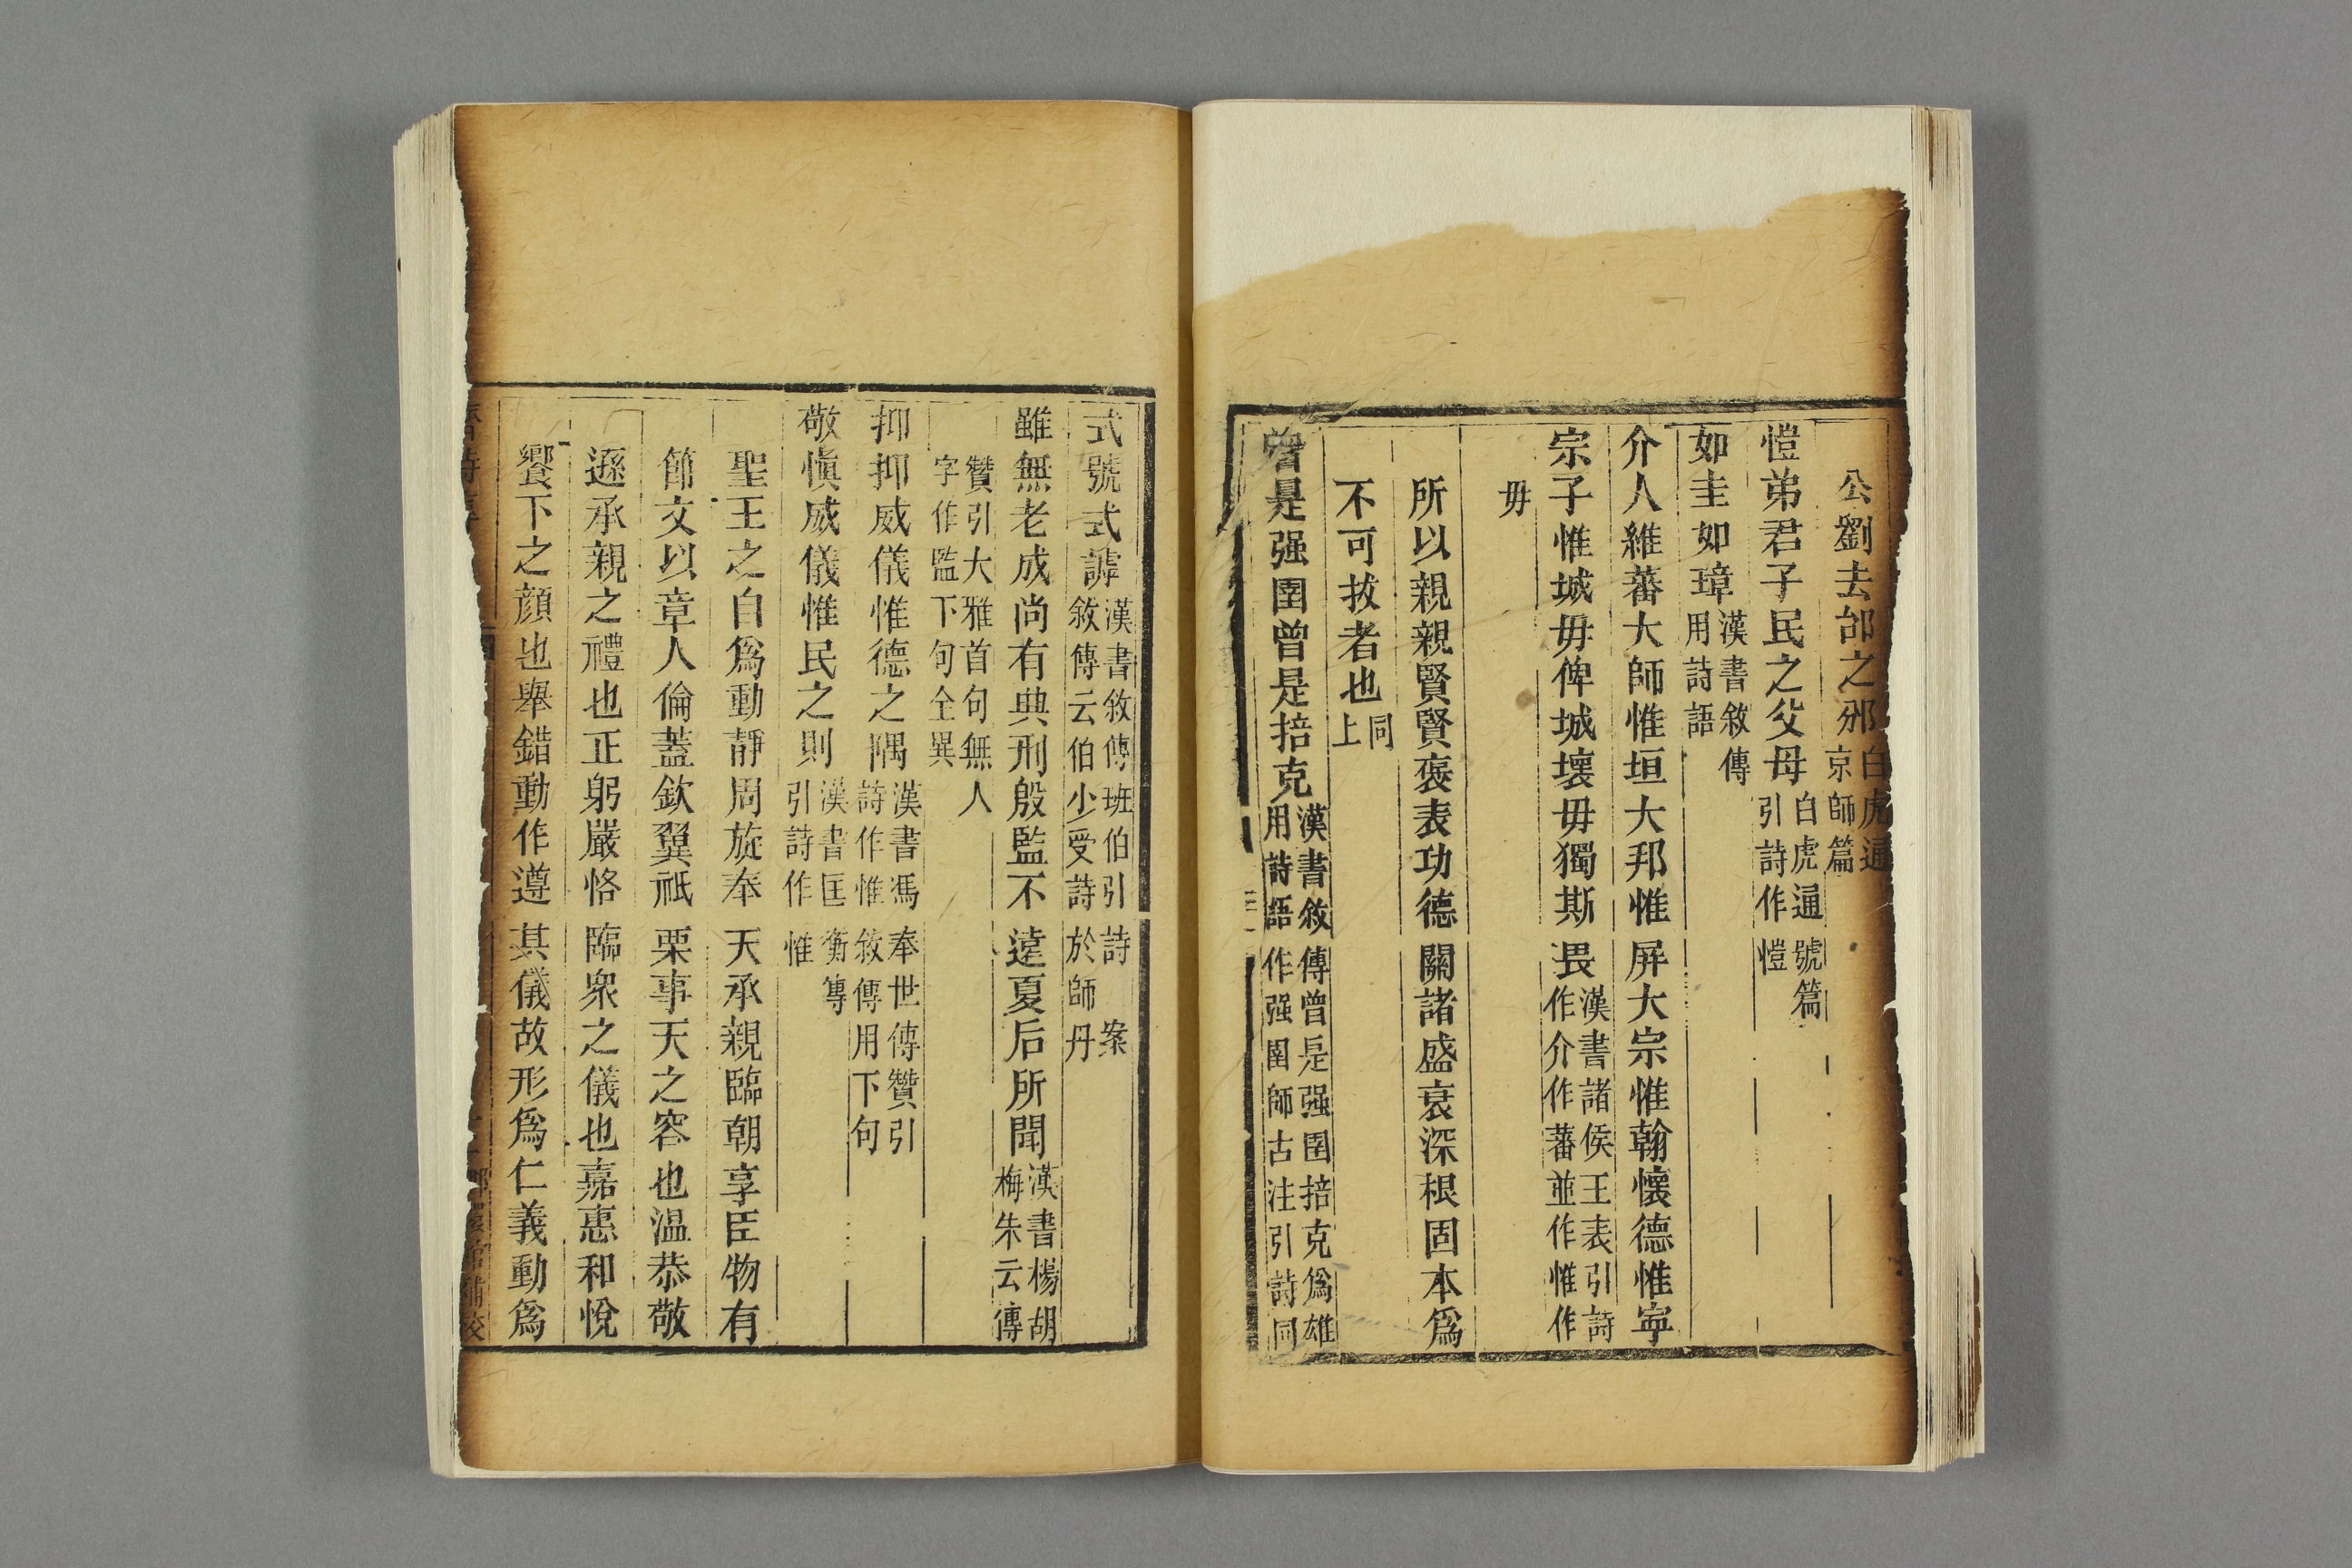 公劉去邰之邠白虎通京師篇
愷弟君子民之父母白虎通號篇引詩作愷
如圭如璋漢書敘傳用詩語
介人維蕃大師惟垣大邦惟屏大宗惟翰懷德惟寍
宗子惟城毋俾城壞毋獨斯畏漢書諸侯王表引詩作介作蕃並作惟作
毋
所以親親賢賢褒表功德關諸盛衰深根固本爲
不可拔者也同上
曾是强圉曾是掊克漢書敘傳曾是强圉掊克爲雄用詩語作强圉師古注引詩同
式號式謼漢書敘傳班伯引詩 案敘傳云伯少受詩於師丹
雖無老成尚有典刑殷監不遠夏后所聞漢書楊胡梅朱云傳
贊引大雅首句無人字作監下句全異
抑抑威儀惟德之隅漢書馮奉世傳贊引詩作惟敘傳用下句
敬愼威儀惟民之則漢書匡衡傳引詩作惟
聖王之自爲動靜周旋奉天承親臨朝享臣物有
節文以章人倫蓋欽翼祇栗事天之容也溫恭敬
遜承親之禮也正躬嚴恪臨衆之儀也嘉惠和悅
饗下之顔也舉錯動作遵其儀故形爲仁義動爲